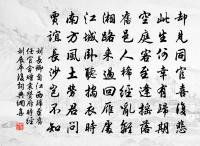 却見同官喜復悲
此生何幸有歸期
空庭客至逢搖落
舊邑人稀經亂離
湘路來過回雁處
江城臥聽搗衣時
南方風土勞君問
賈誼長沙豈不知
劉長卿自江西歸至舊
任官舍贈袁贊府時經
劉展平後